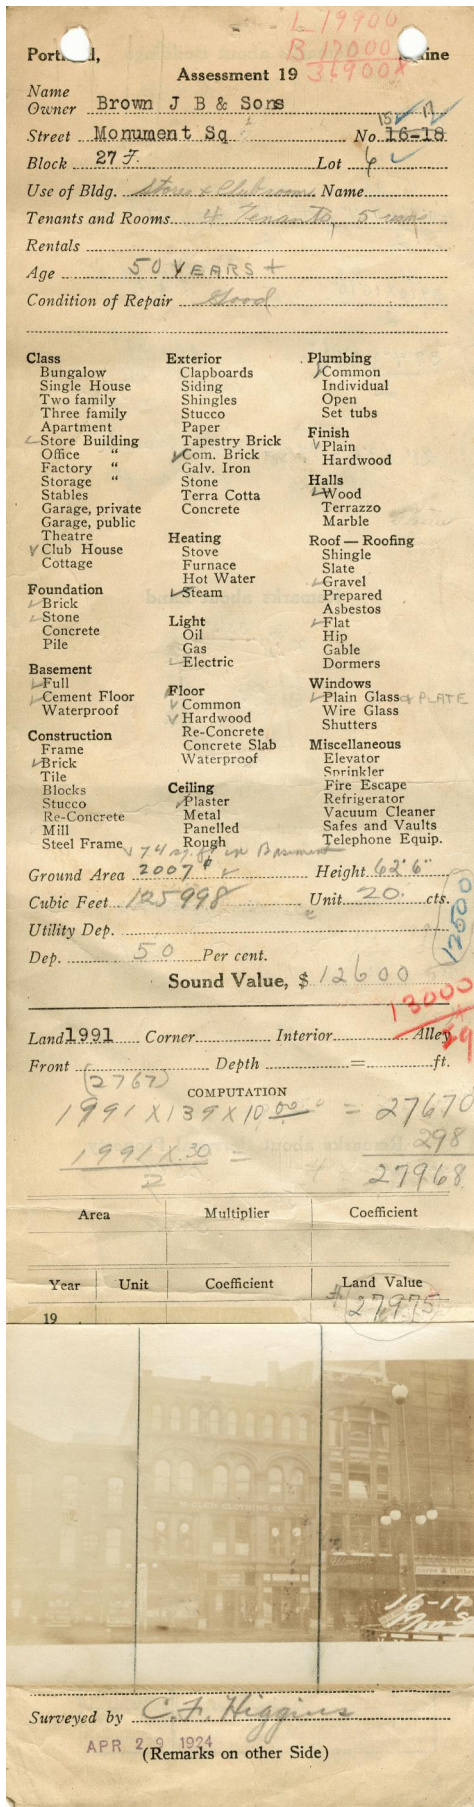 L 19900
B 17000
36900
Portland, Maine
Assessment 19
Name
Owner Brown J B & Sons
15 17
Street Monument Sq No. 16-18
Block 27 F. Lot 6
Use of Bldg. Stores & Clubrooms Name
Tenants and Rooms 4 Tenants, 5 rms
Rentals
Age 50 YEARS +
Condition of Repair Good
Class
Bungalow
Single House
Two family
Three family
Apartment
Store Building
Office "
Factory "
Storage "
Stables
Garage, private
Garage, public
Theatre
Club House
Cottage
Foundation
Brick
Stone
Concrete
Pile
Basement
Full
Cement Floor
Waterproof
Construction
Frame
Brick
Tile
Blocks
Stucco
Re-Concrete
Mill
Steel Frame
Exterior
Clapboards
Siding
Shingles
Stucco
Paper
Tapestry Brick
Com. Brick
Galv. Iron
Stone
Terra Cotta
Concrete
Heating
Stove
Furnace
Hot Water
Steam
Light
Oil
Gas
Electric
Floor
Common
Hardwood
Re-Concrete
Concrete Slab
Waterproof
Ceiling
Plaster
Metal
Panelled
Rough
Plumbing
Common
Individual
Open
Set tubs
Finish
Plain
Hardwood
Halls
Wood
Terrazzo
Marble
Roof — Roofing
Shingle
Slate
Gravel
Prepared
Asbestos
Flat
Hip
Gable
Dormers
Windows
Plain Glass & PLATE
Wire Glass
Shutters
Miscellaneous
Elevator
Sprinkler
Fire Escape
Refrigerator
Vacuum Cleaner
Safes and Vaults
Telephone Equip.
74 sq. ft. in Basement
Ground Area 2007 Height 62' 6"
Cubic Feet 125998 Unit 20 cts.
12500
Utility Dep.
Dep. 50 Per cent.
Sound Value, $ 12600
13000
Land 1991 Corner Interior Alley
Front Depth = ft.
(2767)
COMPUTATION
1991 X 139 X 10.00 = 27670
1991 X .30 = 298
2 27968
Area Multiplier Coefficient
Year Unit Coefficient Land Value
19 27975
McGLEN CLOTHING CO.
16-17
Mon Sq
Surveyed by C. F. Higgins
APR 29 1924
(Remarks on other Side)